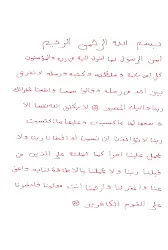 بسم الله الرحمن الرحيم
آمن الرسول بما انزل اليه من ربه والمؤمنون
كل آمن بالله وملئكته وكتبه ورسله لا نفرق
بين أحد من رسله وقالوا سمعنا وأطعنا غفرانك
ربنا واليك المصير لا يكلف الله نفسا الا
وسعها لها ما كسبت وعليها ما اكتسبت
ربنا لا تؤاخذنا ان نسينا أو اخطأنا ربنا ولا
تحمل علينا اصرا كما حملته على الذين من
قبلنا ربنا ولا تحملنا ما لا طاقة لنا به واعف
عنا واغفر لنا وارحمنا أنت مولينا فانصرنا
على القوم الكافرين